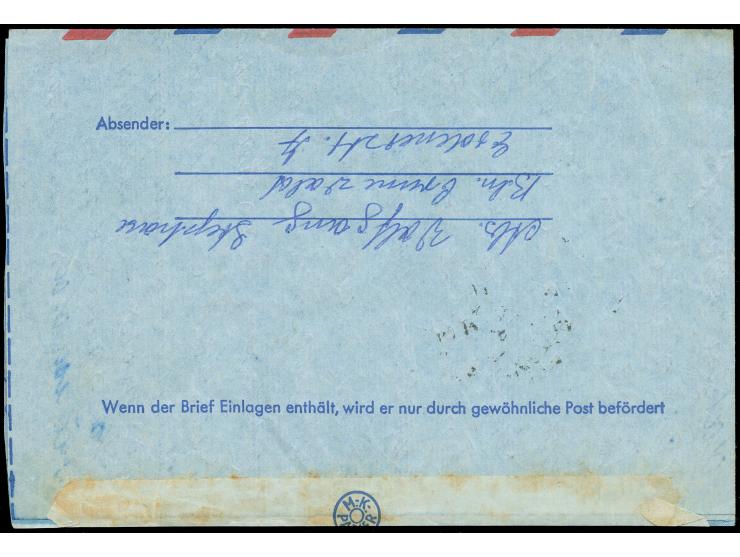 Absender:
Abs. Wolfgang Stephan
Bln. Grunewald
Wenn der Brief Einlagen enthält, wird er nur durch gewöhnliche Post befördert
M.-K.-
PAPIER